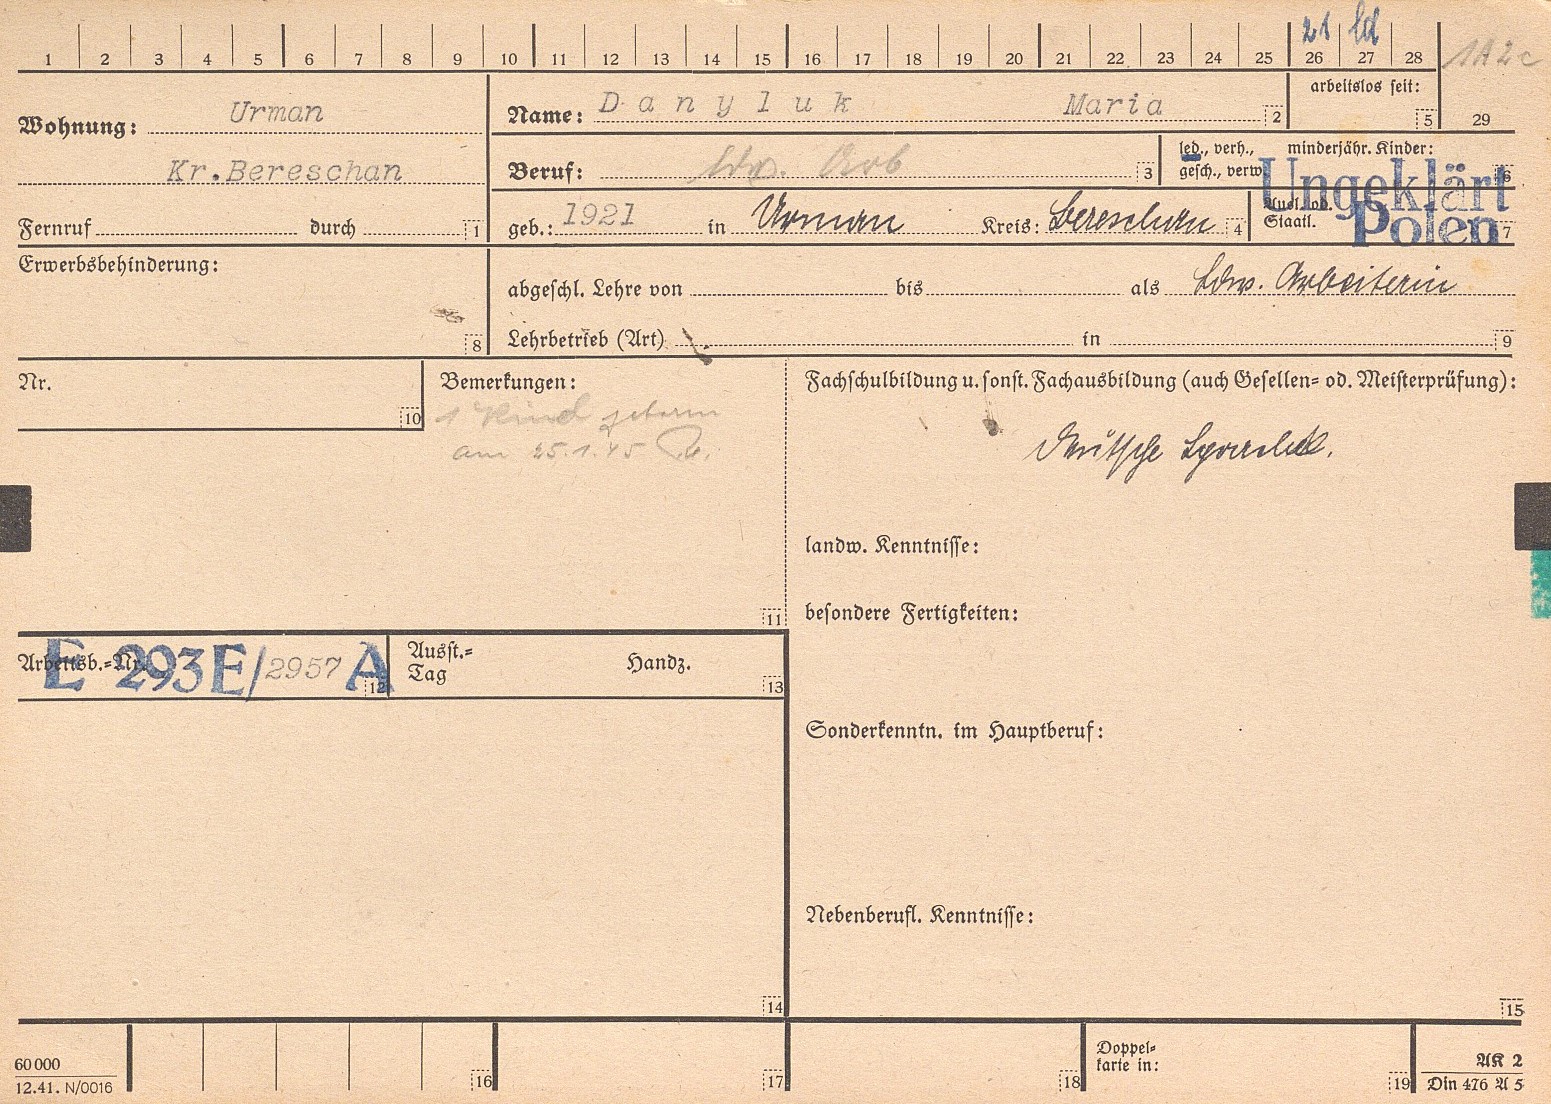 1 2 3 4 5 6 7 8 9 10 11 12 13 14 15 16 17 18 19 20 21 22 23 24 25 26 27 28
21 ld
1A2c
Wohnung: Urman
Kr.Bereschan
Fernruf durch 1
Name: Danyluk Maria 2
arbeitslos seit: 5
29
Beruf: ldw. Arb 3
led., verh., gesch., verw.
minderjähr. Kinder: 6
geb.: 1921 in Urman Kreis: Bereschan 4
Ausl. od. Staatl. 7
Ungeklärt
Polen
Erwerbsbehinderung: 8
abgeschl. Lehre von bis als Ldw. Arbeiterin
Lehrbetrieb (Art) in 9
Nr. 10
Bemerkungen:
1 Kind geboren
am 25.1.45
11
Fachschulbildung u. sonst. Fachausbildung (auch Gesellen- od. Meisterprüfung):
Deutsche
landw. Kenntnisse:
besondere Fertigkeiten:
Arbeitsb.-Nr. E 293E/2957 A 12
Ausst.-Tag Handz. 13
Sonderkenntn. im Hauptberuf:
Nebenberufl. Kenntnisse:
14
15
60000
12.41. N/0016
16
17
18
Doppel-
karte in: 19
AK 2
Din 476 A 5